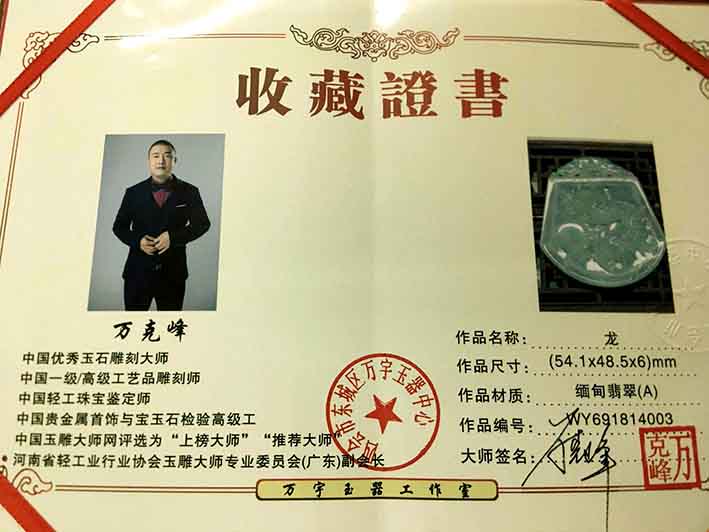 收藏證書
万克峰
中国优秀玉石雕刻大师
中国一级/高级工艺品雕刻师
中国轻工珠宝鉴定师
中国贵金属首饰与宝玉石检验高级工
中国玉雕大师网评选为“上榜大师”“推荐大师”
河南省轻工业行业协会玉雕大师专业委员会(广东)副会长
作品名称: 龙
作品尺寸: (54.1x48.5x6)mm
作品材质: 缅甸翡翠(A)
作品编号: WY691814003
大师签名:
万克峰
四会市东城区万宇玉器中心
万宇玉器工作室